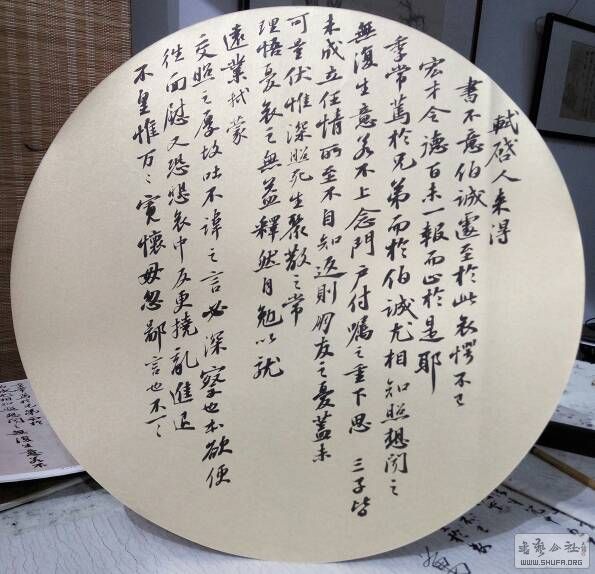 軾啓人来得
書不意伯誠遽至於此哀愕不已
宏才令德百未一報而止於是耶
季常篤於兄弟而於伯誠尤相知照想聞之
無復生意若不上念門户付囑之重下思三子皆
未成立任情所至不自知返則朋友之憂蓋未
可量伏惟深照死生聚散之常
理悟憂哀之無益釋然自勉以就
遠業軾蒙
交照之厚故吐不諱之言必深察也本欲便
往面慰又恐悲哀中反更撓亂進退
不皇惟万〻寬懷毋忽鄙言也不一〻
书艺公社
WWW.SHUFA.ORG